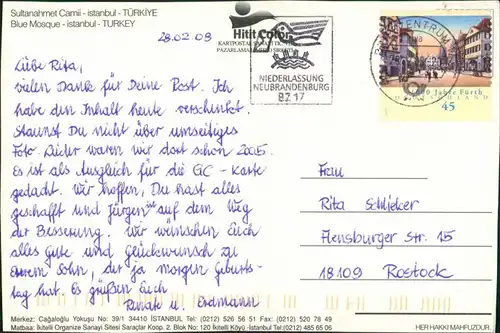 Sultanahmet Camii - istanbul - TÜRKİYE
Blue Mosque - istanbul - TURKEY
28.02.08
Hitit Color
KARTPOSTAL SANAYİ TİC
PAZARLAMA
NIEDERLASSUNG
NEUBRANDENBURG
BZ 17
BRIEFZENTRUM
1000 Jahre Fürth
DEUTSCHLAND
45
Liebe Rita,
vielen Dank für Deine Post. Ich
habe den Inhalt heute verschenkt.
Staunst Du nicht über umseitiges
Foto. Leider waren wir dort schon 2005.
Es ist als Ausgleich für die GC - Karte
gedacht. Wir hoffen, Du hast alles
geschafft und Jürgen ist auf dem Weg
der Besserung. Wir wünschen Euch
alles Gute und Glückwunsch zu
Eurem Sohn, der ja morgen Geburts-
tag hat. Es grüßen Euch
u. Erdmann
Frau
Rita Schlieker
Flensburger Str. 15
18109 Rostock
Merkez: Çağaloğlu Yokuşu No: 39/1 34410 İSTANBUL Tel: (0212) 526 56 51 Fax: (0212) 520 78 49
Matbaa: İkitelli Organize Sanayi Sitesi Saraçlar Koop. 2. Blok No: 120 İkitelli Köyü -İstanbul Tel: (0212) 485 65 06
HER HAKKI MAHFUZDUR